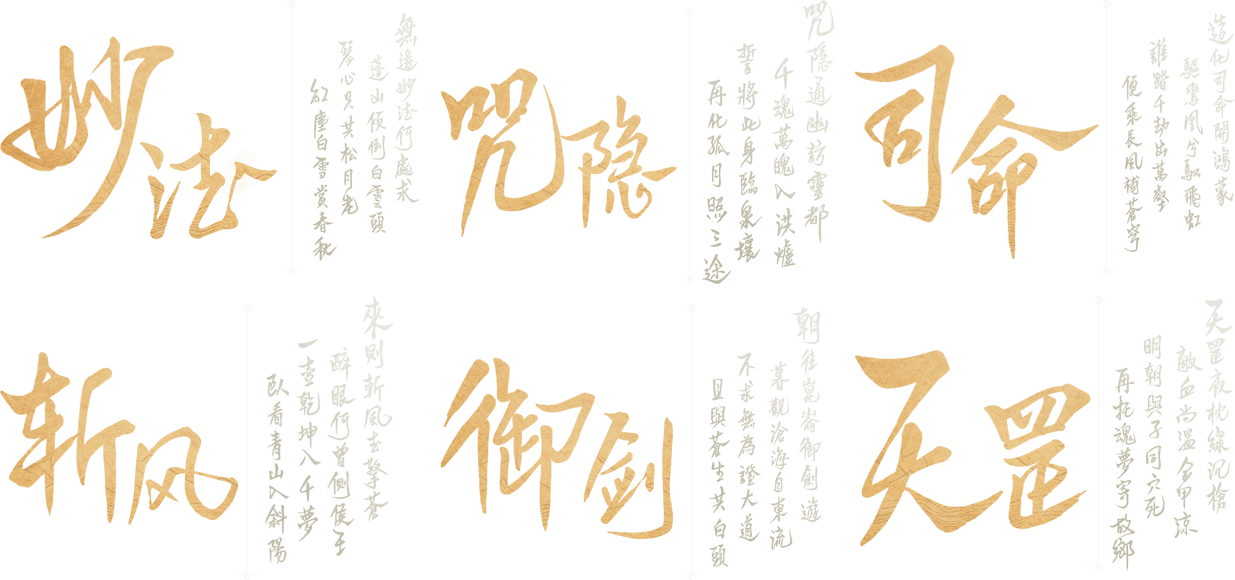 妙法
無邊妙法何處求
蓬山傾倒白雲頭
琴心只共松月老
紅塵白雪賞春秋
咒隐
咒隱通幽訪靈都
千魂萬魄入洪爐
誓將此身臨泉壤
再化孤月照三途
司命
造化司命開鴻蒙
驅鸞鳳兮馭飛虹
誰踏千劫出萬壑
便乘長風補蒼穹
斩风
來則斬風去擎蒼
醉眼何曾側侯王
一壺乾坤入千夢
臥看青山入斜陽
御剑
朝往崑崙御劍遊
暮觀滄海自東流
不求無為證大道
且與蒼生共白頭
天罡
天罡夜挑綠沉槍
敵血尚溫金甲涼
明朝與子同穴死
再托魂夢寄故鄉